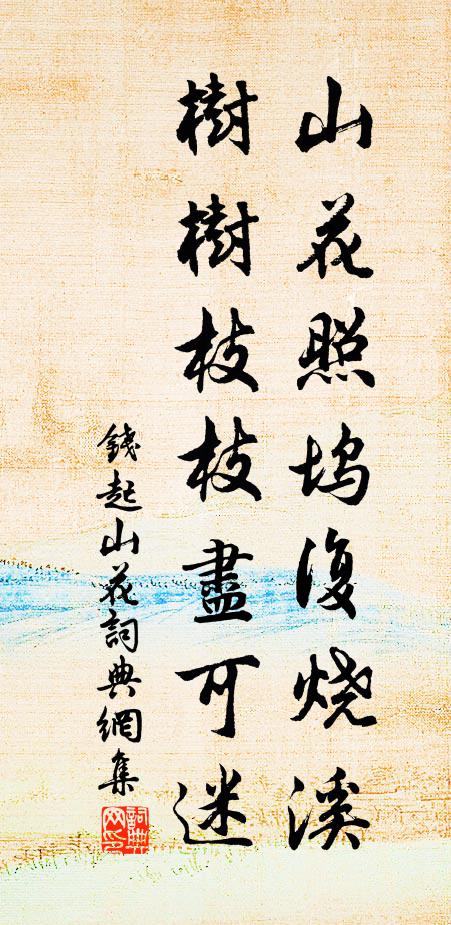 山花照塢復燒溪
樹樹枝枝盡可迷
錢起山花詞典網集
詞典網印